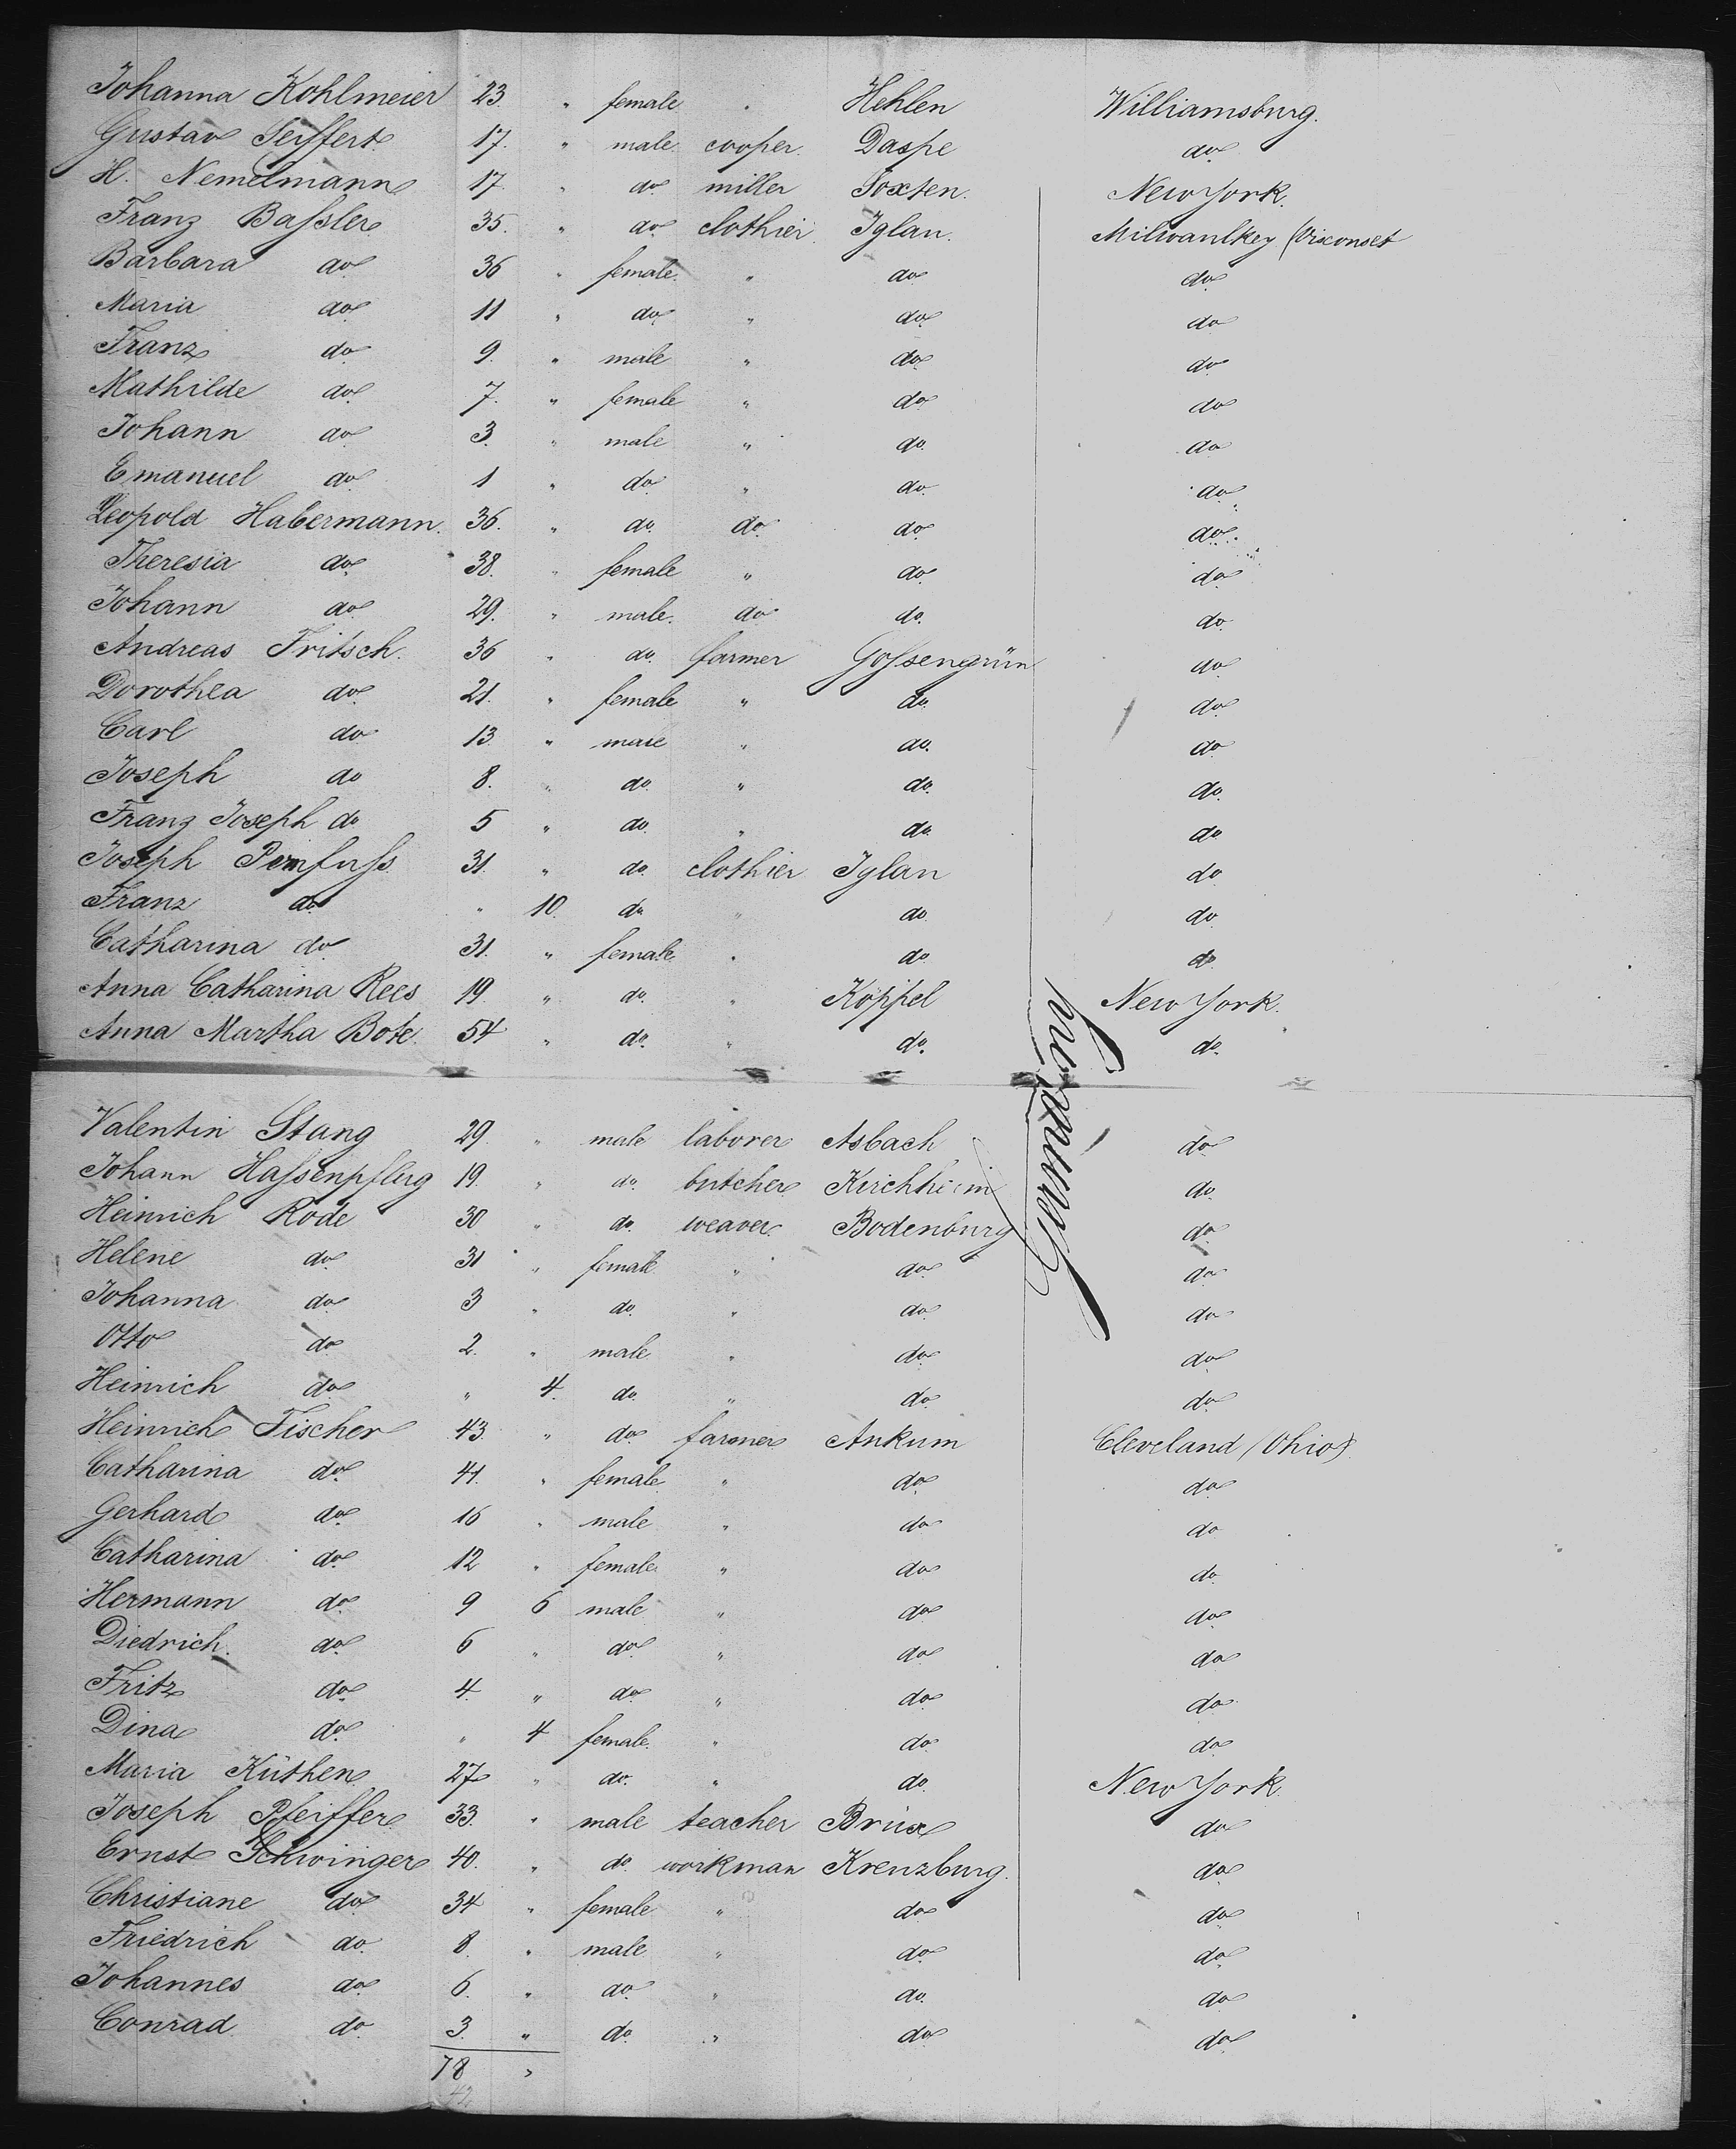 Johanna Kohlmeier 23. " female " Hehlen Williamsburg.
Gustav Seiffert 17. " male. cooper. Daspe do
H. Nemelmann 17. " do miller Soxten. New York.
Franz Baſsler 35. " do clothier. Iglau. Milwaulkey (Visconset
Barbara do 36 " female. " do do
Maria do 11 " do " do do
Franz do 9. " male " do do
Mathilde do 7. " female " do do
Johann do 3. " male " do. do
Emanuel do 1 " do " do. do
Leopold Habermann. 36. " do. do do do
Theresia do 38. " female " do do
Johann do 29. " male. do do. do
Andreas Fritsch. 36 " do. farmer Goſsengrün do
Dorothea do 21. " female " do. do
Carl do 13. " male " do. do
Joseph do 8. " do. " do. do.
Franz Joseph do 5 " do. " do. do
Joseph clothier Iglau do
Franz do " 10. do " do. do
Catharina do 31. " female " do do
Anna Catharina Rees 19. " do. " Köppel New York.
Anna Martha Bote. 54 " do. " do. do.
Valentin Stang 29. " male laborer Asbach do
Johann Haſsenpflug 19. " do. butcher Kirchheim do.
Heinrich Rode 30 " do. weaver Bodenburg do
Helene do 31 " female " do do
Johanna do 3 " do. " do do
Otto do 2. " male " do do
Heinrich do " 4. do. " do do
Germany
Heinrich Fischer 43. " do farmer Ankum Cleveland (Ohio).
Catharina do 41. " female " do do
Gerhard do 16 " male " do do
Catharina do 12 " female " do do
Hermann do 9 6 male " do do
Diedrich. do 6 " do " do do
Fritz do 4. " do " do do
Dina do " 4 female. " do do
Maria Küthen 27 " do. " do. New York
Joseph Pfeiffer 33. " male teacher Brüx do
Ernst Schwinger 40. " do workman Kreuzburg. do
Christiane do 34 " female " do do
Friedrich do 8. " male " do do
Johannes do 6. " do " do. do
Conrad do 3. " do. " do do
78 "